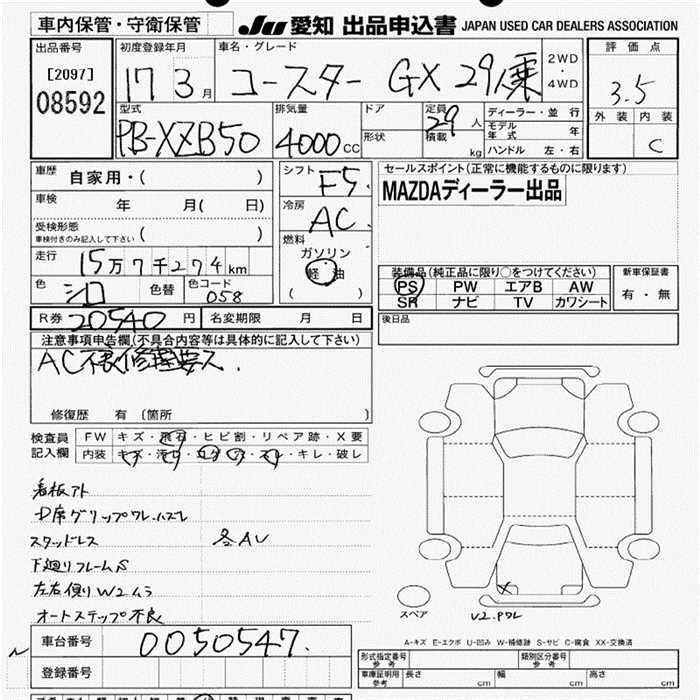 車内保管・守衛保管
JU 愛知 出品申込書 JAPAN USED CAR DEALERS ASSOCIATION
出品番号
[2097]
08592
初度登録年月
17 3月
車名・グレード
コースター GX 29人乗
2WD・4WD
評価点
3.5
外装 内装
C
型式
PB-XZB50
排気量
4000cc
ドア
形状
定員 29人
積載 kg
ディーラー・並行
モデル年式 年
ハンドル 左・右
車歴 自家用・( )
車検 年 月( 日)
受検形態
車検付きのみ記入して下さい ( )
走行 15万7千274km
色 シロ 色替 色コード 058
シフト F5.
冷房 AC.
燃料
ガソリン
軽油
( )
セールスポイント(正常に機能するものに限ります)
MAZDAディーラー出品
装備品(純正品に限り○をつけてください)
PS PW エアB AW
SR ナビ TV カワシート
新車保証書
有・無
R券 20540円 名変期限 月 日
後日品
注意事項申告欄(不具合内容等は具体的に記入して下さい)
AC不良修理要ス.
修復歴 有 〔箇所 〕
検査員記入欄
FW キズ・飛石・ヒビ割・リペア跡・X要
内装 キズ・汚レ・コゲ・穴・スレ・キレ・破レ
看板アト
D席グリップワレ、ハズレ
スタッドレス 冬AV
下廻りフレームS
左右側りW2ムラ
オートステップ不良
スペア
X
U2.ワレ
A-キズ E-エクボ U-凹み W-補修跡 S-サビ C-腐食 XX-交換済
車台番号 0050547.
登録番号
型式指定番号 参考
類別区分番号 参考
車庫証明用 参考 長さ cm 幅 cm 高さ cm